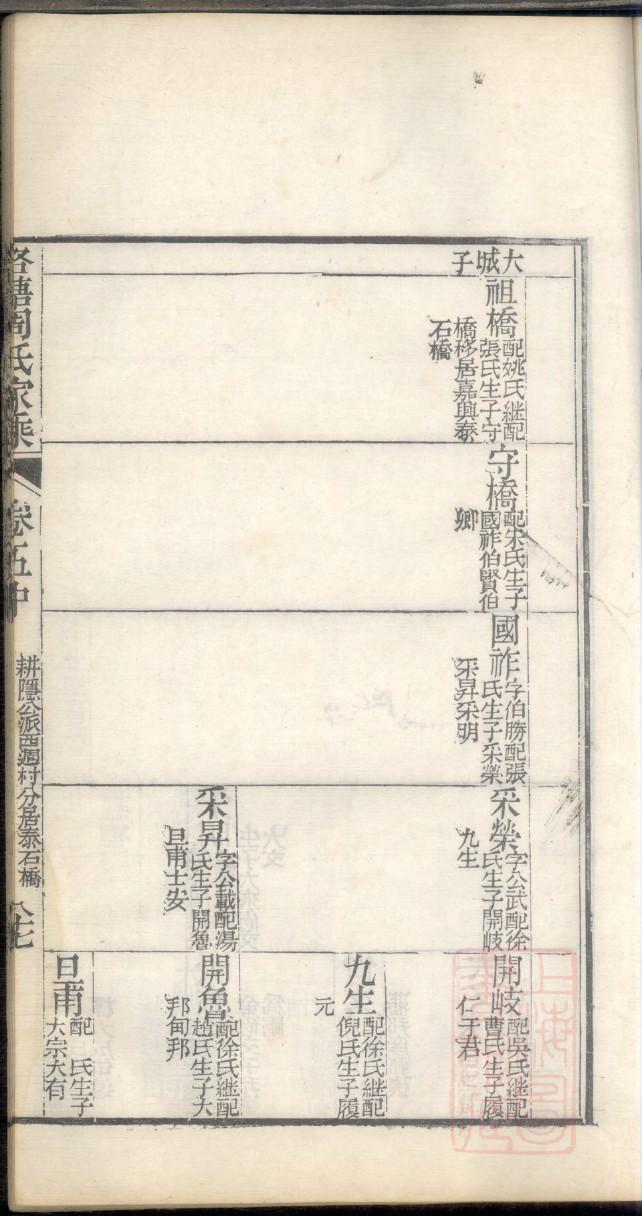 大城子
祖橋
配姚氏継配
張氏生子守
橋移居嘉興泰
石橋
守橋
配宋氏生子
國祚伯賢伯
卿
國祚
字伯勝配張
氏生子采榮
采昇采明
采榮
字公武配徐
氏生子開歧
九生
采昇
字公載配湯
氏生子開魯
旦甫士安
開歧
配吳氏継配
曹氏生子履
仁于君
九生
配徐氏継配
倪氏生子履
元
開魯
配徐氏継配
趙氏生子大
邦甸邦
旦甫
配 氏生子
大宗大有
周氏家乘
卷五中
耕隱公派西週村分居泰石橋